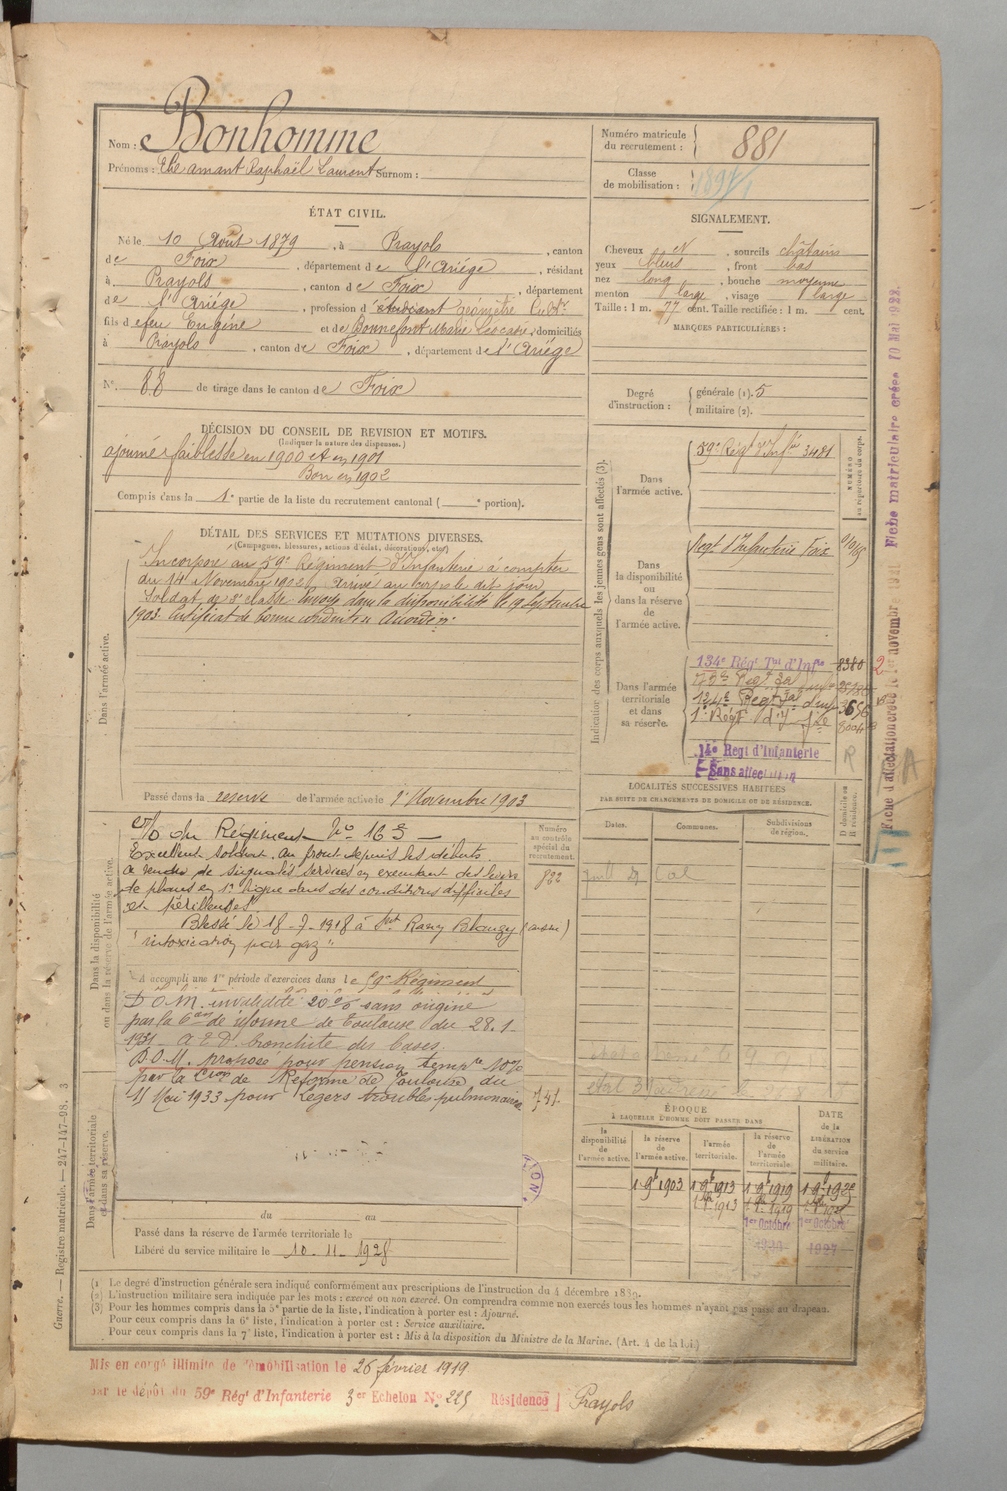 Nom : Bonhomme
Prénoms : Elie amant Raphaël Laurent Surnom :
Numéro matricule du recrutement : 881
Classe de mobilisation :
ÉTAT CIVIL.
Né le 10 Août 1879, à Prayols, canton
de Foix, département de l'Ariége, résidant
à Prayols, canton de Foix, département
de l'Ariége, profession d'étudiant géomètre
fils de feu Eugéne et de Bonnefont Marie Léocadie, domiciliés
à Prayols, canton de Foix, département de l'Ariége
N° 88 de tirage dans le canton de Foix
SIGNALEMENT.
Cheveux , sourcils châtains
yeux bleus, front bas
nez long, bouche moyenne
menton large, visage large
Taille : 1 m. 77 cent. Taille rectifiée : 1 m. cent.
MARQUES PARTICULIÈRES :
Degré d'instruction : générale (1). 5
militaire (2).
DÉCISION DU CONSEIL DE REVISION ET MOTIFS.
(Indiquer la nature des dispenses.)
ajourné faiblesse en 1900 et en 1901
Bon en 1902
Compris dans la 1e partie de la liste du recrutement cantonal ( e portion).
DÉTAIL DES SERVICES ET MUTATIONS DIVERSES.
(Campagnes, blessures, actions d'éclat, décorations, etc.)
Dans l'armée active.
Incorporé au 59e Régiment d'Infanterie à compter
du 14 Novembre 1902 arrivé au corps le dit jour
Soldat de 2e classe. Envoyé dans la disponibilité le 19 Septembre
1903. Certificat de bonne conduite Accordé
Passé dans la reserve de l'armée active le 1er Novembre 1903
Indication des corps auxquels les jeunes gens sont affectés (3).
NUMÉRO au répertoire du corps.
Dans l'armée active.
59e Régt d'Infie 3481
Dans la disponibilité ou dans la réserve de l'armée active.
Régt d'Infanterie Foix
Dans l'armée territoriale et dans sa réserve.
134e Régt Tal d'Infie 8380
124e Régt 3656
1er Régt
14e Regt d'Infanterie
Sans affectation
R
Fiche matriculaire créée 10 Mai 1922.
LOCALITÉS SUCCESSIVES HABITÉES
PAR SUITE DE CHANGEMENTS DE DOMICILE OU DE RÉSIDENCE.
Dates. Communes. Subdivisions de région. D domicile ou R résidence.
Dans la disponibilité ou dans la réserve de l'armée active.
Numéro au contrôle spécial du recrutement.
822
O/ du Régiment No 165
Excellent soldat. Au front depuis les débuts
a rendu de signalés services en exécutant des levers
de plans en 1e ligne dans des conditions difficiles
et périlleuses.
Blessé le 18-7-1918 à (aisne)
"intoxication par gaz"
A accompli une 1re période d'exercices dans le 59e Régiment
D.O.M. invalidité 20% sans origine
par la Con de réforme de Toulouse du 28.1.
1931 bronchite des bases.
D.O.M. proposé pour pension tempre 10%
par la Con de Réforme de Toulouse du
11 Mai 1933 pour Légers troubles pulmonaires
741
Dans l'armée territoriale et dans sa réserve.
du au
Passé dans la réserve de l'armée territoriale le
Libéré du service militaire le 10-11-1928
ÉPOQUE
À LAQUELLE L'HOMME DOIT PASSER DANS
la disponibilité de l'armée active. la réserve de l'armée active. l'armée territoriale. la réserve de l'armée territoriale. DATE de la LIBÉRATION du service militaire.
1 9b 1903 1 9b 1913 1 9b 1919
1913 1919
1er Octobre 1er Octobre
1927
(1 Le degré d'instruction générale sera indiqué conformément aux prescriptions de l'instruction du 4 décembre 1889.
(2) L'instruction militaire sera indiquée par les mots : exercé ou non exercé. On comprendra comme non exercés tous les hommes n'ayant pas passé au drapeau.
(3) Pour les hommes compris dans la 5e partie de la liste, l'indication à porter est : Ajourné.
Pour ceux compris dans la 6e liste, l'indication à porter est : Service auxiliaire.
Pour ceux compris dans la 7e liste, l'indication à porter est : Mis à la disposition du Ministre de la Marine. (Art. 4 de la loi.)
Guerre. — Registre matricule. — 247-147-98. 3
Mis en congé illimité de démobilisation le 26 février 1919
par le dépôt du 59e Régt d'Infanterie 3er Echelon No 225 Résidence Prayols